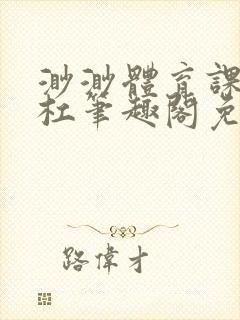 渺渺體育課
杜筆趣閣免
路偉才